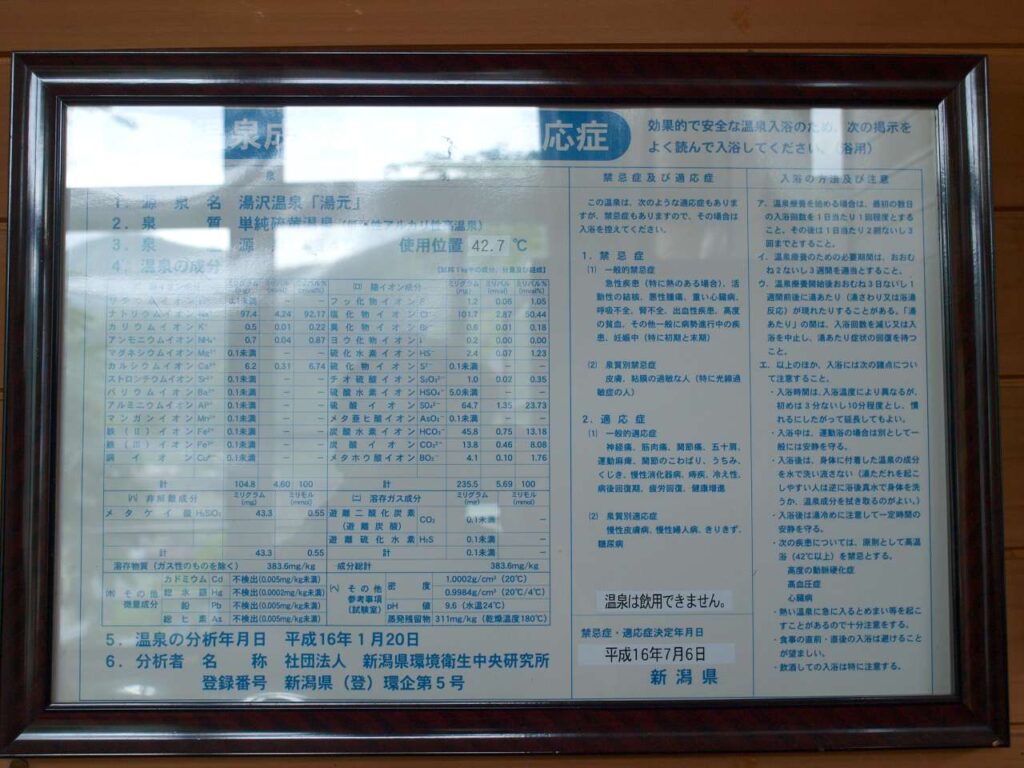 泉成
応症
効果的で安全な温泉入浴のため、次の掲示を
よく読んで入浴してください。（浴用）
1．源泉名 湯沢温泉「湯元」
2．泉質 単純硫黄温泉（低張性アルカリ性高温泉）
3．泉 使用位置 42.7 ℃
4．温泉の成分
ミリグラム (mg) ミリモル (mmol) ミリバル% (mval%)
ナトリウムイオン 97.4 4.24 92.17
カリウムイオン K⁺ 0.5 0.01 0.22
アンモニウムイオン NH₄⁺ 0.7 0.04 0.87
マグネシウムイオン Mg²⁺ 0.1未満 － －
カルシウムイオン Ca²⁺ 6.2 0.31 6.74
ストロンチウムイオン Sr²⁺ 0.1未満 － －
バリウムイオン Ba²⁺ 0.1未満 － －
アルミニウムイオン Al³⁺ 0.1未満 － －
マンガンイオン Mn²⁺ 0.1未満 － －
鉄（Ⅱ）イオン Fe²⁺ 0.1未満 － －
鉄（Ⅲ）イオン Fe³⁺ 0.1未満 － －
銅イオン Cu²⁺ 0.1未満 － －
計 104.8 4.60 100
(ロ) 陰イオン成分 ミリグラム (mg) ミリモル (mmol) ミリバル% (mval%)
フッ化物イオン F⁻ 1.2 0.06 1.05
塩化物イオン Cl⁻ 101.7 2.87 50.44
臭化物イオン Br⁻ 0.6 0.01 0.18
ヨウ化物イオン I⁻ 0.2 0.00 0.00
硫化水素イオン HS⁻ 2.4 0.07 1.23
硫化物イオン S²⁻ 0.1未満 － －
チオ硫酸イオン S₂O₃²⁻ 1.0 0.02 0.35
硫酸水素イオン HSO₄⁻ 5.0未満 － －
硫酸イオン SO₄²⁻ 64.7 1.35 23.73
メタ亜ヒ酸イオン AsO₂⁻ 0.1未満 － －
炭酸水素イオン HCO₃⁻ 45.8 0.75 13.18
炭酸イオン CO₃²⁻ 13.8 0.46 8.08
メタホウ酸イオン BO₂⁻ 4.1 0.10 1.76
計 235.5 5.69 100
(ハ) 非解離成分 ミリグラム (mg) ミリモル (mmol)
メタケイ酸 H₂SiO₃ 43.3 0.55
計 43.3 0.55
(ニ) 溶存ガス成分 ミリグラム (mg) ミリモル (mmol)
遊離二酸化炭素（遊離炭酸） CO₂ 0.1未満 －
遊離硫化水素 H₂S 0.1未満 －
計 0.1未満 －
溶存物質（ガス性のものを除く） 383.6mg/kg 成分総計 383.6mg/kg
(ホ) その他微量成分
カドミウム Cd 不検出(0.005mg/kg未満)
総水銀 Hg 不検出(0.0002mg/kg未満)
鉛 Pb 不検出(0.005mg/kg未満)
総ヒ素 As 不検出(0.005mg/kg未満)
(ヘ) その他参考事項（試験室）
密度 1.0002g/cm³（20℃）
0.9984g/cm³（20℃/4℃）
pH値 9.6（水温24℃）
蒸発残留物 311mg/kg（乾燥温度180℃）
5．温泉の分析年月日 平成16年1月20日
6．分析者 名称 社団法人 新潟県環境衛生中央研究所
登録番号 新潟県（登）環企第5号
禁忌症及び適応症
この温泉は、次のような適応症もあり
ますが、禁忌症もありますので、その場合は
入浴を控えてください。
1．禁忌症
(1) 一般的禁忌症
急性疾患（特に熱のある場合）、活
動性の結核、悪性腫瘍、重い心臓病、
呼吸不全、腎不全、出血性疾患、高度
の貧血、その他一般に病勢進行中の疾
患、妊娠中（特に初期と末期）
(2) 泉質別禁忌症
皮膚、粘膜の過敏な人（特に光線過
敏症の人）
2．適応症
(1) 一般的適応症
神経痛、筋肉痛、関節痛、五十肩、
運動麻痺、関節のこわばり、うちみ、
くじき、慢性消化器病、痔疾、冷え性、
病後回復期、疲労回復、健康増進
(2) 泉質別適応症
慢性皮膚病、慢性婦人病、きりきず、
糖尿病
温泉は飲用できません。
禁忌症・適応症決定年月日
平成16年7月6日
新潟県
入浴の方法及び注意
ア．温泉療養を始める場合は、最初の数日
の入浴回数を1日当たり1回程度とする
こと。その後は1日当たり2回ないし3
回までとすること。
イ．温泉療養のための必要期間は、おおむ
ね2ないし3週間を適当とすること。
ウ．温泉療養開始後おおむね3日ないし1
週間前後に湯あたり（湯さわり又は浴湯
反応）が現れたりすることがある。「湯
あたり」の間は、入浴回数を減じ又は入
浴を中止し、湯あたり症状の回復を待つ
こと。
エ．以上のほか、入浴には次の諸点につい
て注意すること。
・入浴時間は、入浴温度により異なるが、
初めは3分ないし10分程度とし、慣
れるにしたがって延長してもよい。
・入浴中は、運動浴の場合は別として一
般には安静を守る。
・入浴後は、身体に付着した温泉の成分
を水で洗い流さない（湯ただれを起こ
しやすい人は逆に浴後真水で身体を洗
うか、温泉成分を拭き取るのがよい。）
・入浴後は湯冷めに注意して一定時間の
安静を守る。
・次の疾患については、原則として高温
浴（42℃以上）を禁忌とする。
高度の動脈硬化症
高血圧症
心臓病
・熱い温泉に急に入るとめまい等を起こ
すことがあるので十分注意をする。
・食事の直前・直後の入浴は避けること
が望ましい。
・飲酒しての入浴は特に注意する。